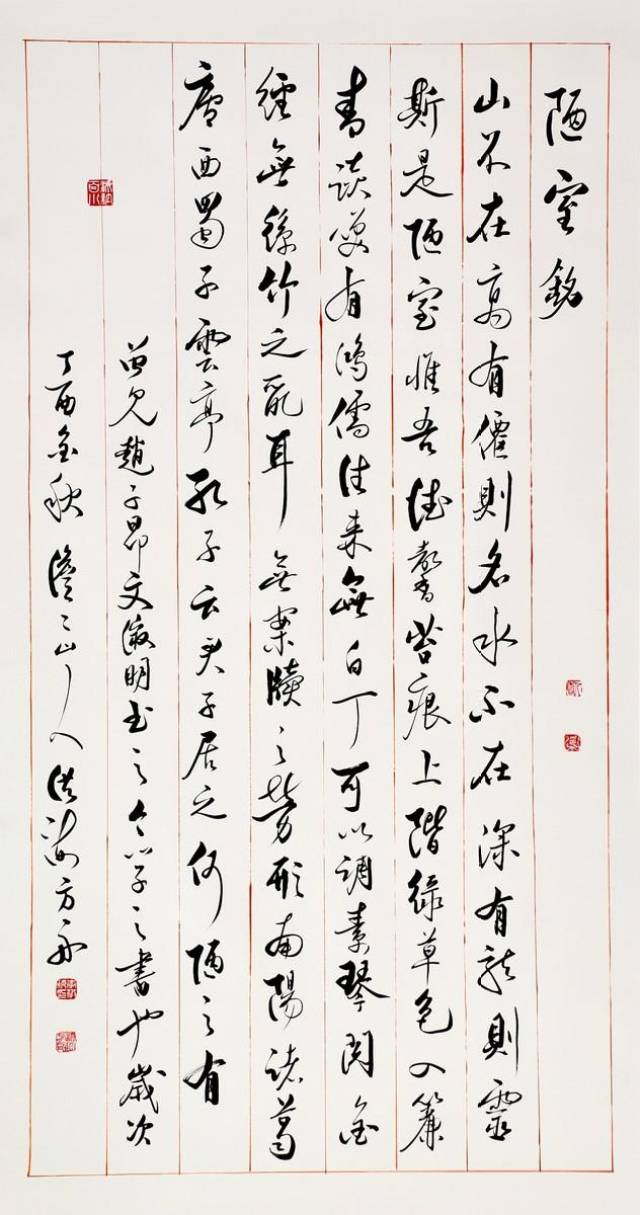 陋室銘
山不在高有僊則名水不在深有龍則靈
斯是陋室惟吾德馨苔痕上階綠草色入簾
青談笑有鴻儒往來無白丁可以調素琴閱金
經無絲竹之亂耳無案牘之勞形南陽諸葛
廬西蜀子雲亭孔子云君子居之何陋之有
曾見趙子昂文徵明书之今學之書也歲次
丁酉金秋山人